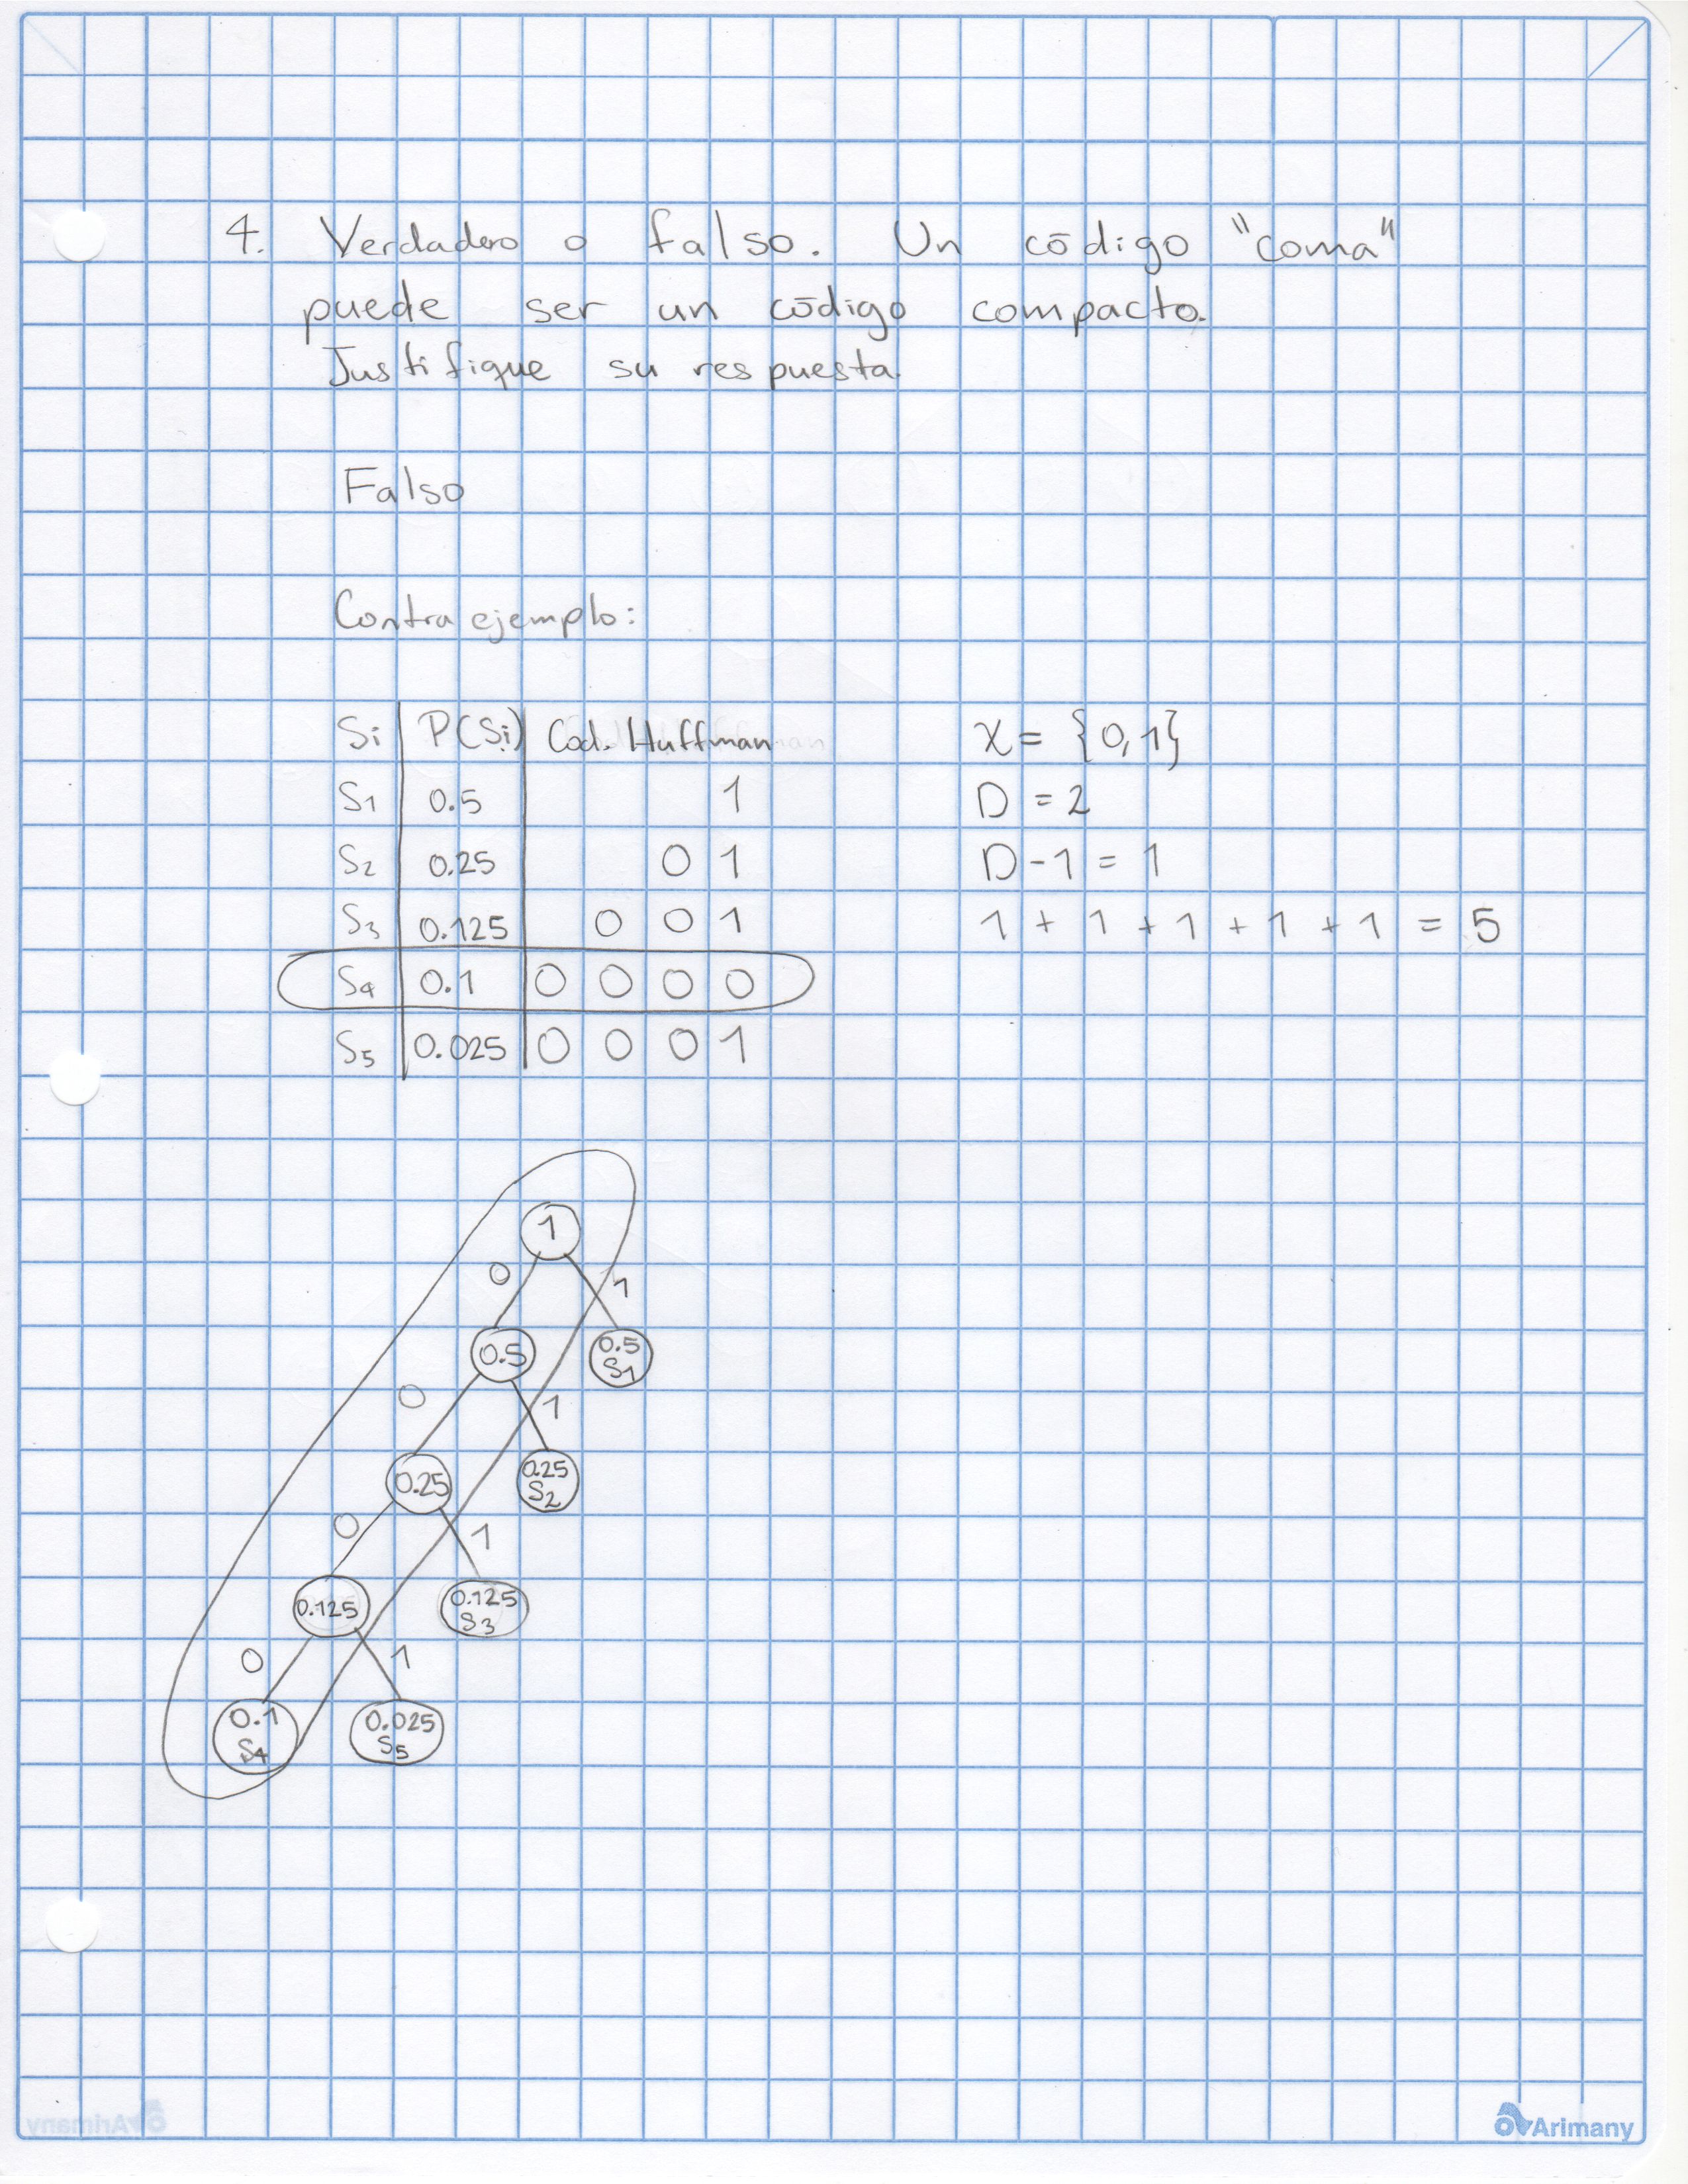 4. Verdadero o falso. Un código "coma"
puede ser un código compacto.
Justifique su respuesta.
Falso
Contra ejemplo:
Si P(Si) Cod. Huffman
S1 0.5 1
S2 0.25 0 1
S3 0.125 0 0 1
S4 0.1 0 0 0 0
S5 0.025 0 0 0 1
X = {0,1}
D = 2
D-1 = 1
1 + 1 + 1 + 1 + 1 = 5
1
0 1
0.5 0.5 S1
0 1
0.25 0.25 S2
0 1
0.125 0.125 S3
0 1
0.1 S4 0.025 S5
Arimany